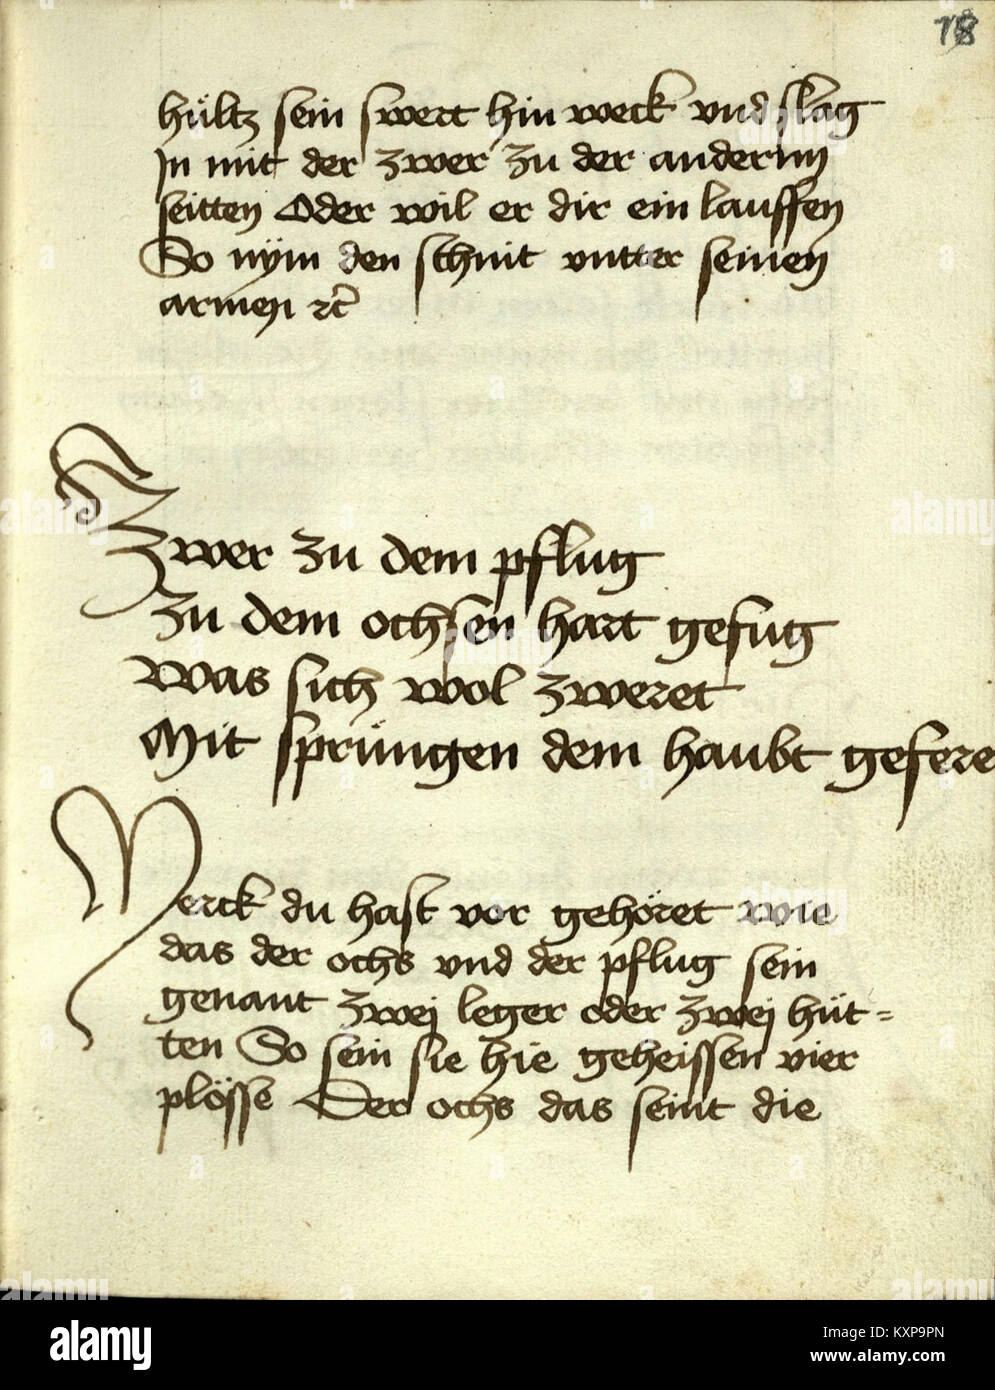 18
hültz sein swert hin weck vnd slag
In mit der zwer zu der andernn
seitten Oder wil er dir ein lauffen
So nÿm den schnit vntter seinen
armen ꝛc̃
Zwer zu dem pflug
zu dem ochsen hart gefug
was sich wol zweret
Mit sprüngen dem haubt gefere
Merck du hast vor gehöret wie
das der ochs vnd der pflug sein
genant zwej leger oder zwej hüt=
ten So sein sie hie geheissen vier
plösse Der ochs das seint die
alamy
Image ID: KXP9PN
www.alamy.com